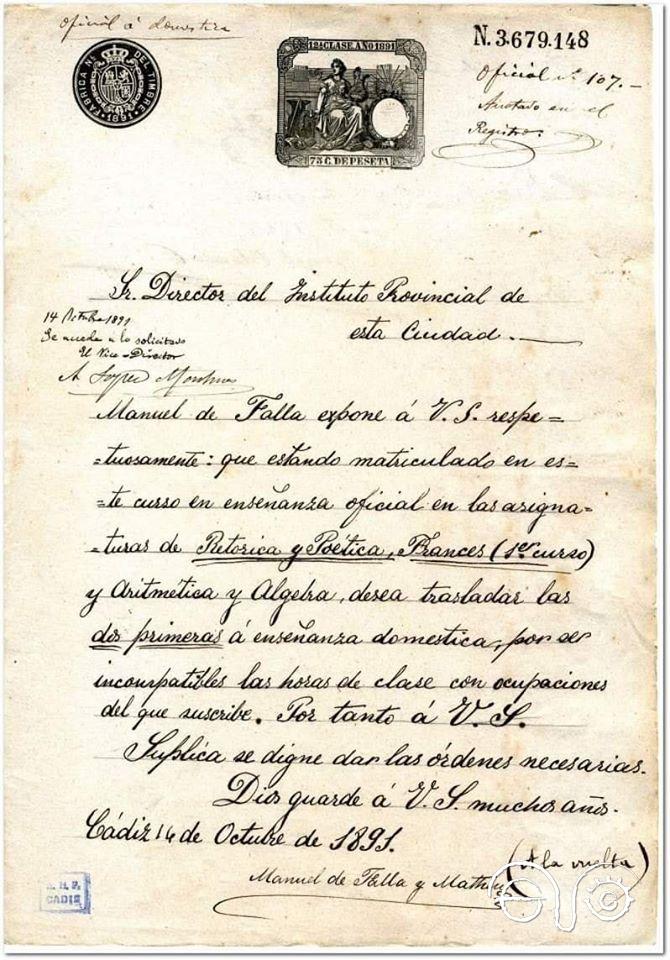 Oficial á domestica
FABRICA Nal DEL TIMBRE
1891
12ª CLASE AÑO 1891
75 C. DE PESETA
N.3.679.148
Oficial nº 107.-
Anotado en el
Registro.
Sr. Director del Instituto Provincial de
esta Ciudad.
14 Octubre 1891
Se accede a lo solicitado
El Vice-Director
A
Manuel de Falla expone á V. S. respe=
=tuosamente: que estando matriculado en es=
=te curso en enseñanza oficial en las asigna=
=turas de Retorica y Poética, Frances (1er curso)
y Aritmética y Algebra, desea trasladar las
dos primeras á enseñanza domestica, por ser
incompatibles las horas de clase con ocupaciones
del que suscribe. Por tanto á V. S.
Suplica se digne dar las órdenes necesarias.
Dios guarde á V. S. muchos años.
Cádiz 14 de Octubre de 1891.
(A la vuelta)
Manuel de Falla y Matheu
CADIZ